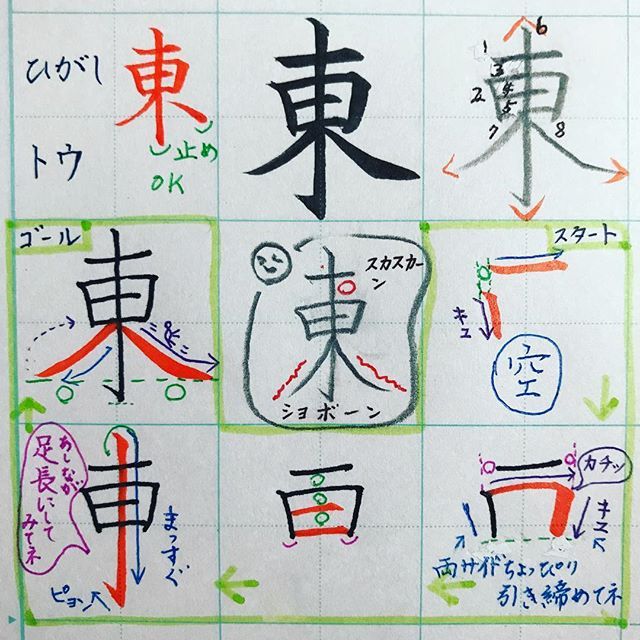 ひがし
トウ
東
止め
OK
東
東
1
2
3
4
5
6
7
8
ゴール
東
東
スカスカーン
ショボーン
スタート
キュ
空
あしなが
足長にして
みてネ
まっすぐ
ピョン
カチッ
キュ
両サイドちょっぴり
引き締めてネ